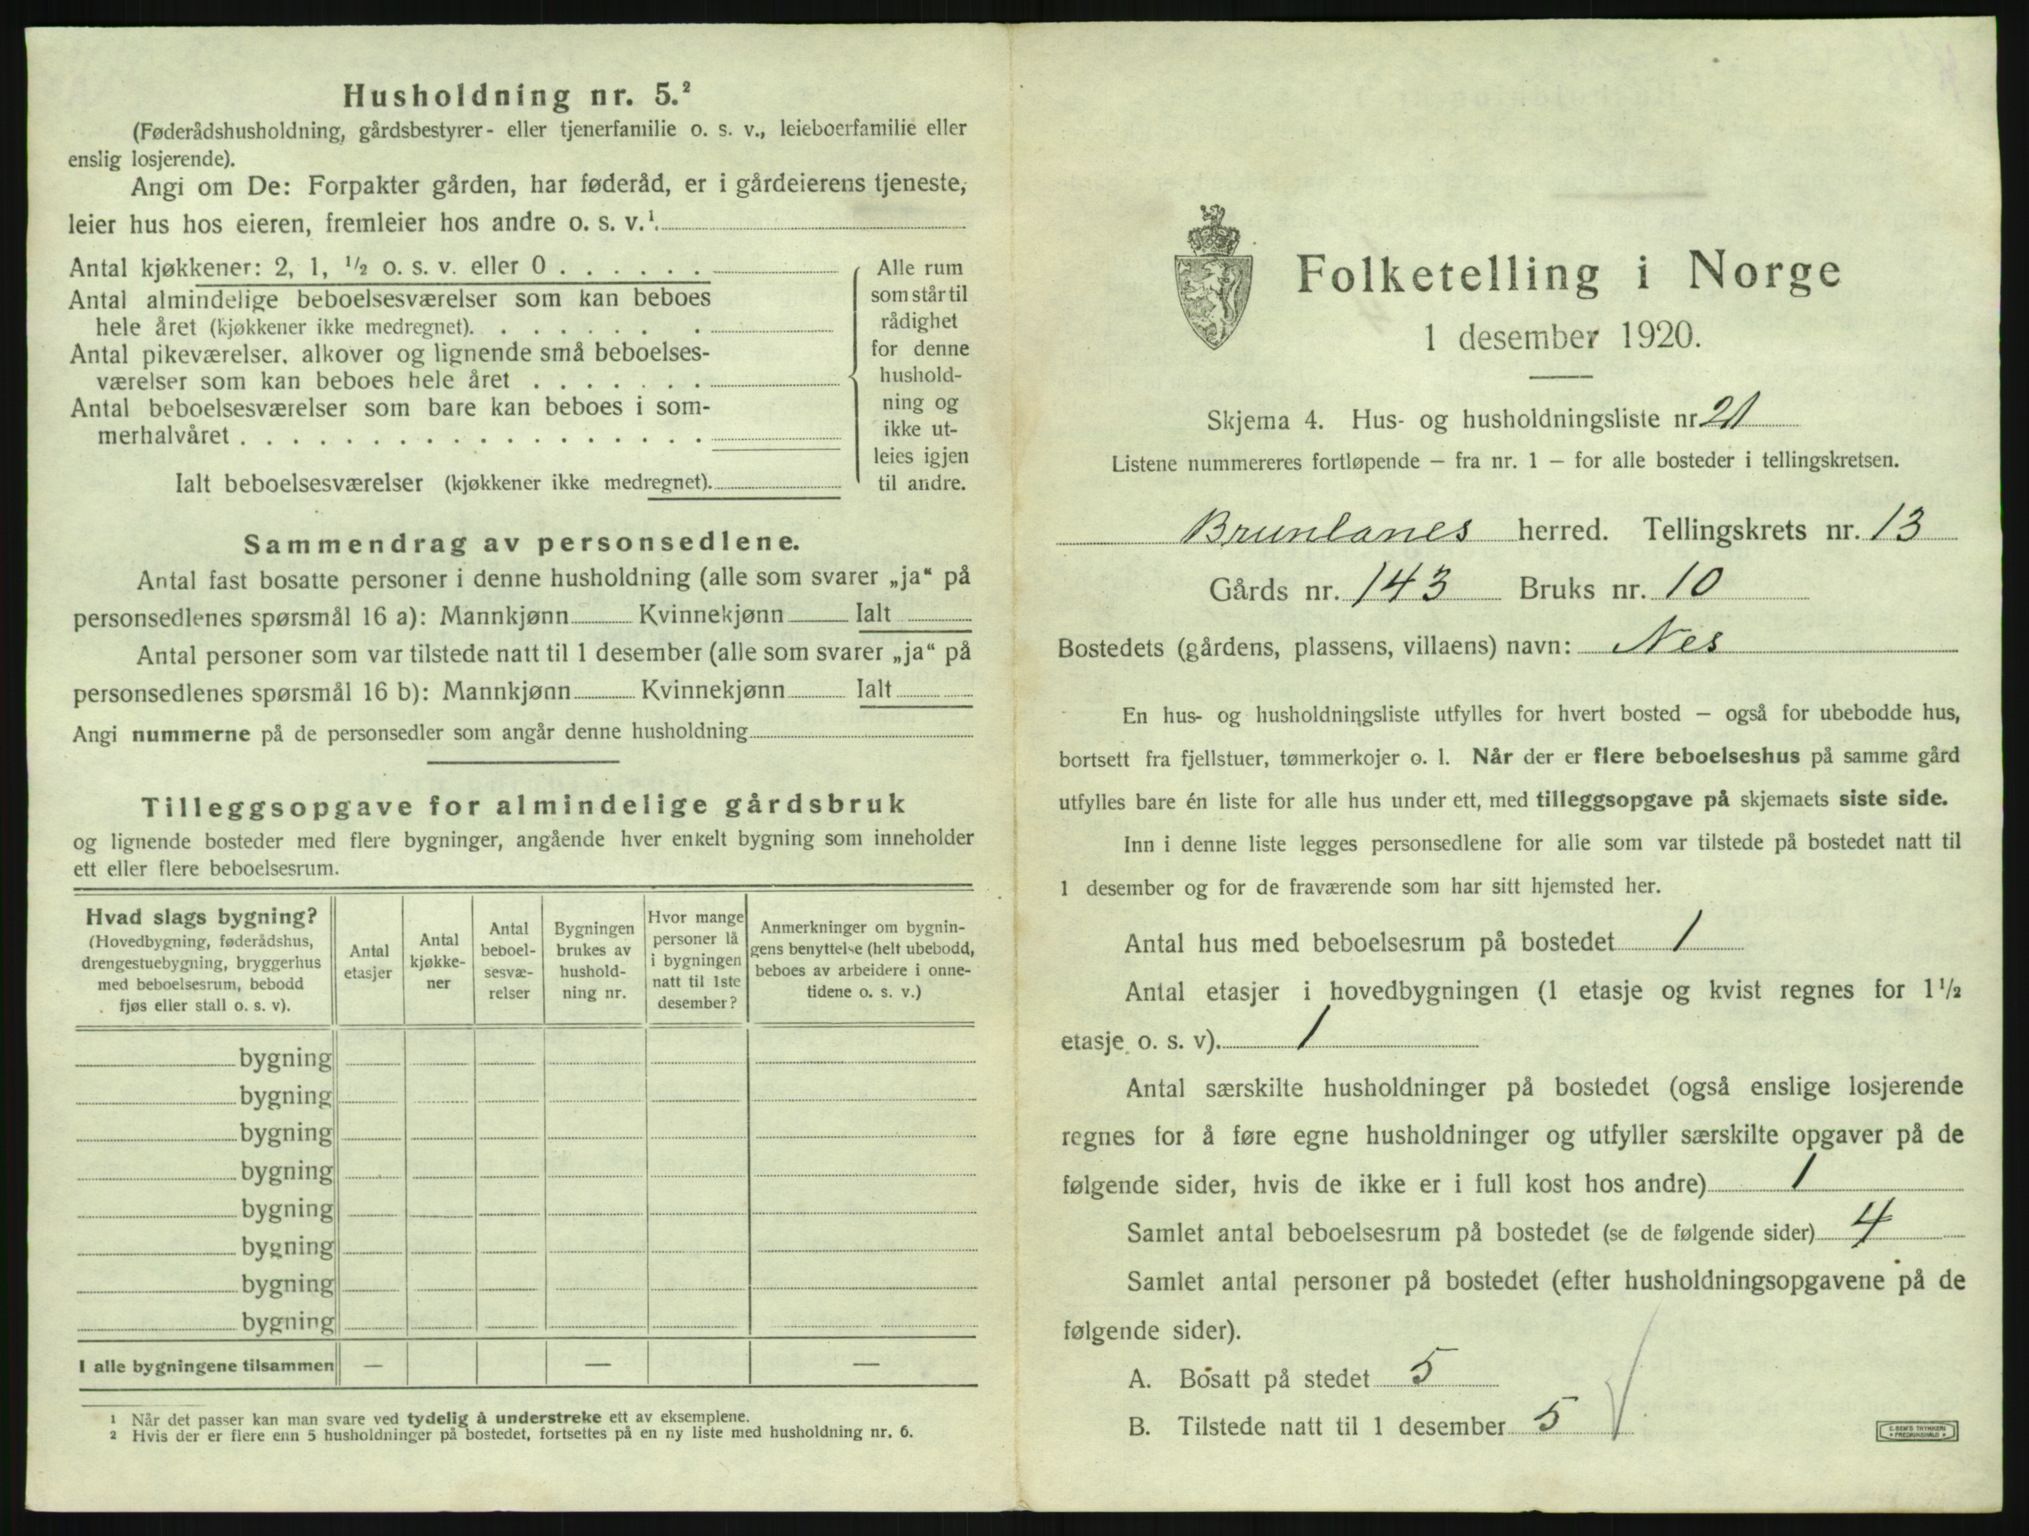 Husholdning nr. 5.²
(Føderådshusholdning, gårdsbestyrer- eller tjenerfamilie o. s. v., leieboerfamilie eller
enslig losjerende).
Angi om De: Forpakter gården, har føderåd, er i gårdeierens tjeneste,
leier hus hos eieren, fremleier hos andre o. s. v.¹.
Antal kjøkkener: 2, 1, ½ o. s. v. eller 0 . . . . . .
Antal almindelige beboelsesværelser som kan beboes
hele året (kjøkkener ikke medregnet). . . . . . . .
Antal pikeværelser, alkover og lignende små beboelses-
værelser som kan beboes hele året . . . . . . .
Antal beboelsesværelser som bare kan beboes i som-
merhalvåret . . . . . . . . . . . . . . . . . .
Ialt beboelsesværelser (kjøkkener ikke medregnet).
Alle rum
som står til
rådighet
for denne
hushold-
ning og
ikke ut-
leies igjen
til andre.
Sammendrag av personsedlene.
Antal fast bosatte personer i denne husholdning (alle som svarer „ja“ på
personsedlenes spørsmål 16 a): Mannkjønn Kvinnekjønn Ialt
Antal personer som var tilstede natt til 1 desember (alle som svarer „ja“ på
personsedlenes spørsmål 16 b): Mannkjønn Kvinnekjønn Ialt
Angi nummerne på de personsedler som angår denne husholdning
Tilleggsopgave for almindelige gårdsbruk
og lignende bosteder med flere bygninger, angående hver enkelt bygning som inneholder
ett eller flere beboelsesrum.
Hvad slags bygning?
(Hovedbygning, føderådshus,
drengestuebygning, bryggerhus
med beboelsesrum, bebodd
fjøs eller stall o. s. v).
Antal
etasjer
Antal
kjøkke-
ner
Antal
beboel-
sesvæ-
relser
Bygningen
brukes av
hushold-
ning nr.
Hvor mange
personer lå
i bygningen
natt til 1ste
desember?
Anmerkninger om bygnin-
gens benyttelse (helt ubebodd,
beboes av arbeidere i onne-
tidene o. s. v.)
bygning
bygning
bygning
bygning
bygning
bygning
bygning
bygning
I alle bygningene tilsammen — — —
¹ Når det passer kan man svare ved tydelig å understreke ett av eksemplene.
² Hvis der er flere enn 5 husholdninger på bostedet, fortsettes på en ny liste med husholdning nr. 6.
Folketelling i Norge
1 desember 1920.
Skjema 4. Hus- og husholdningsliste nr. 21
Listene nummereres fortløpende – fra nr. 1 – for alle bosteder i tellingskretsen.
Brunlanes herred. Tellingskrets nr. 13
Gårds nr. 143 Bruks nr. 10
Bostedets (gårdens, plassens, villaens) navn: Nes
En hus- og husholdningsliste utfylles for hvert bosted – også for ubebodde hus,
bortsett fra fjellstuer, tømmerkojer o. l. Når der er flere beboelseshus på samme gård
utfylles bare én liste for alle hus under ett, med tilleggsopgave på skjemaets siste side.
Inn i denne liste legges personsedlene for alle som var tilstede på bostedet natt til
1 desember og for de fraværende som har sitt hjemsted her.
Antal hus med beboelsesrum på bostedet 1
Antal etasjer i hovedbygningen (1 etasje og kvist regnes for 1½
etasje o. s. v). 1
Antal særskilte husholdninger på bostedet (også enslige losjerende
regnes for å føre egne husholdninger og utfyller særskilte opgaver på de
følgende sider, hvis de ikke er i full kost hos andre) 1
Samlet antal beboelsesrum på bostedet (se de følgende sider) 4
Samlet antal personer på bostedet (efter husholdningsopgavene på de
følgende sider).
A. Bosatt på stedet 5
B. Tilstede natt til 1 desember 5